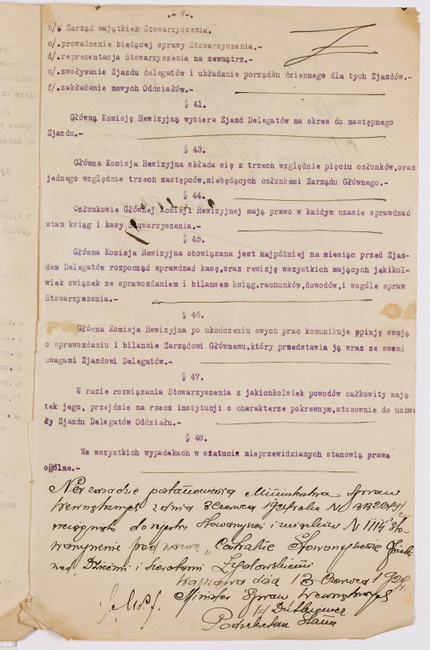 - 7 -
b/. Zarząd majątkiem Stowarzyszenia.
c/.prowadzenie bieżącej sprawy Stowarzyszenia.-
d/.reprezentacja Stowarzyszenia na zewnątrz.-
e/.zwoływanie Zjazdu delegatów i układanie porządku dziennego dla tych Zjazdów.-
f/.zakładanie nowych Oddziałów.-
§ 41.
Główną Komisję Rewizyjną wybiera Zjazd Delegatów na okres do następnego
Zjazdu.-
§ 43.
Główna Komisja Rewizyjna składa się z trzech względnie pięciu członków,oraz
jednego względnie trzech zastępców,niebędących członkami Zarządu Głównego.-
§ 44.
Członkowie Głównej Komisji Rewizyjnej mają prawo w każdym czasie sprawdzać
stan ksiąg i kasy Stowarzyszenia.-
§ 45.
Główna Komisja Rewizyjna obowiązana jest najpóźniej na miesiąc przed Zjaz-
dem Delegatów rozpocząć sprawdzać kasę,oraz rewizję wszystkich mających jakikol-
wiek związek ze sprawozdaniem i bilansem ksiąg.rachunków,dowodów,i wogóle spraw
Stowarzyszenia.-
§ 46.
Główna Komisja Rewizyjna po ukończeniu swych prac komunikuje opinję swoją
o sprawozdaniu i bilansie Zarządowi Głównemu,który przedstawia ją wraz ze swemi
uwagami Zjazdowi Delegatów.-
§ 47.
W razie rozwiązania Stowarzyszenia z jakichkolwiek powodów całkowity mają
tek jego, przejdzie na rzecz instytucji o charakterze pokrewnym,stosownie do uchwa
ły Zjazdu Delegatów Oddziału.-
§ 48.
We wszystkich wypadkach w statucie nieprzewidzianych stanowią prawa
ogólne.-
Na zasadzie postanowienia Ministerstwa Spraw
Wewnętrznych z dnia czerwca 1924 roku N
wciągnięto do rejestru Stowarzyszeń i związków N 1114 Sto-
warzyszenie pod nazwą „Centralne Stowarzyszenie Opieki
nad Dziećmi i sierotami Żydowskiemi
Warszawa dnia 13 Czerwca 192
Minister Spraw Wewnętrznych
Podsekretarz Stanu